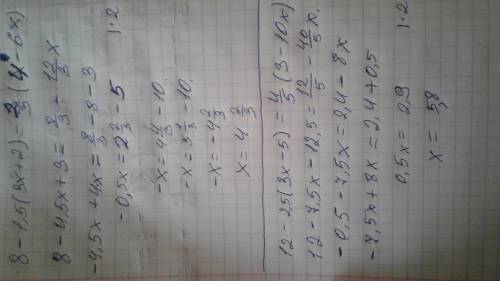 8 - 1,5(3x+2) = 2/3 (4 - 6x)
8 - 4,5x + 3 = 8/3 - 12/3 x
-4,5x + 4x = 8/3 - 8 - 3
-0,5x = 2 2/3 - 5 | ·2
-x = 4 4/3 - 10
-x = 5 1/3 - 10
-x = -4 2/3
x = 4 2/3
12 - 2,5(3x - 5) = 4/5 (3 - 10x)
12 - 7,5x - 12,5 = 12/5 - 40/5 x.
-0,5 - 7,5x = 2,4 - 8x
-7,5x + 8x = 2,4 + 0,5
0,5x = 2,9 | ·2
x = 5,8